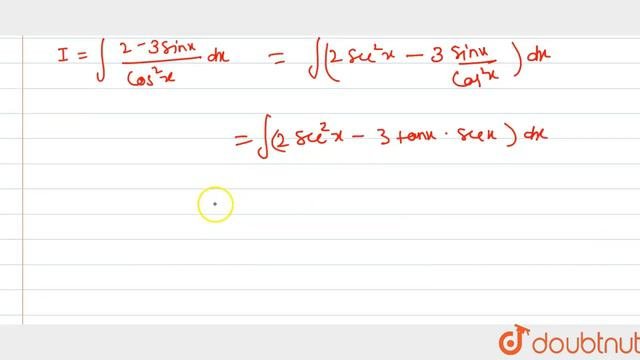 I = ∫ 2-3sinx/cos²x dx = ∫(2 sec²x - 3 sinx/cos²x) dx
= ∫(2 sec²x - 3 tanx · secx) dx
doubtnut